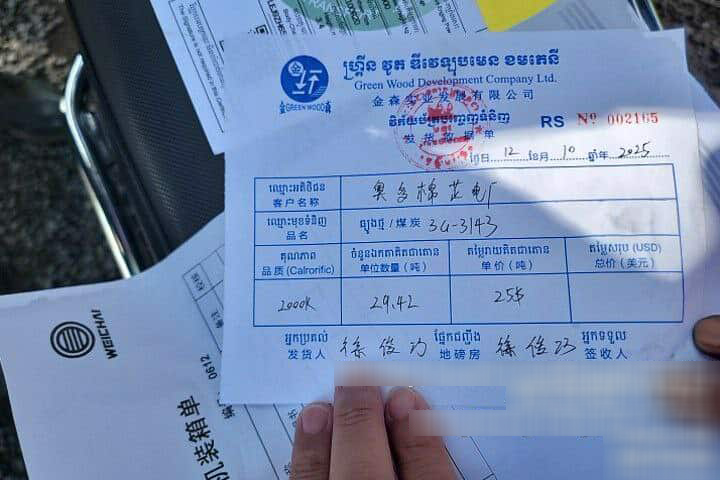 ហ្គ្រីន វូត ឌីវេឡុបមេន ខមភេនី
Green Wood Development Company Ltd.
金森实业发展有限公司
GREEN WOOD
发货收据单
RS № 002165
ថ្ងៃទី 12 ខែ 10 ឆ្នាំ 2025
ឈ្មោះអតិថិជន
客户名称
奥多棉芷电厂
ឈ្មោះមុខទំនិញ
品名
ធ្យូងថ្ម / 煤炭 3G-3143
គុណភាព
品质 (Calrorific)
ចំនួនឯកតាគិតជាតោន
单位数量 (吨)
តម្លៃរាយគិតជាតោន
单价 (吨)
តម្លៃសរុប (USD)
总价 (美元)
2000K
29.42
25$
អ្នកប្រគល់
发货人 徐俊巧
ផ្នែកជញ្ជីង
地磅房 徐俊巧
អ្នកទទួល
签收人
WEICHAI
机装箱单
0612